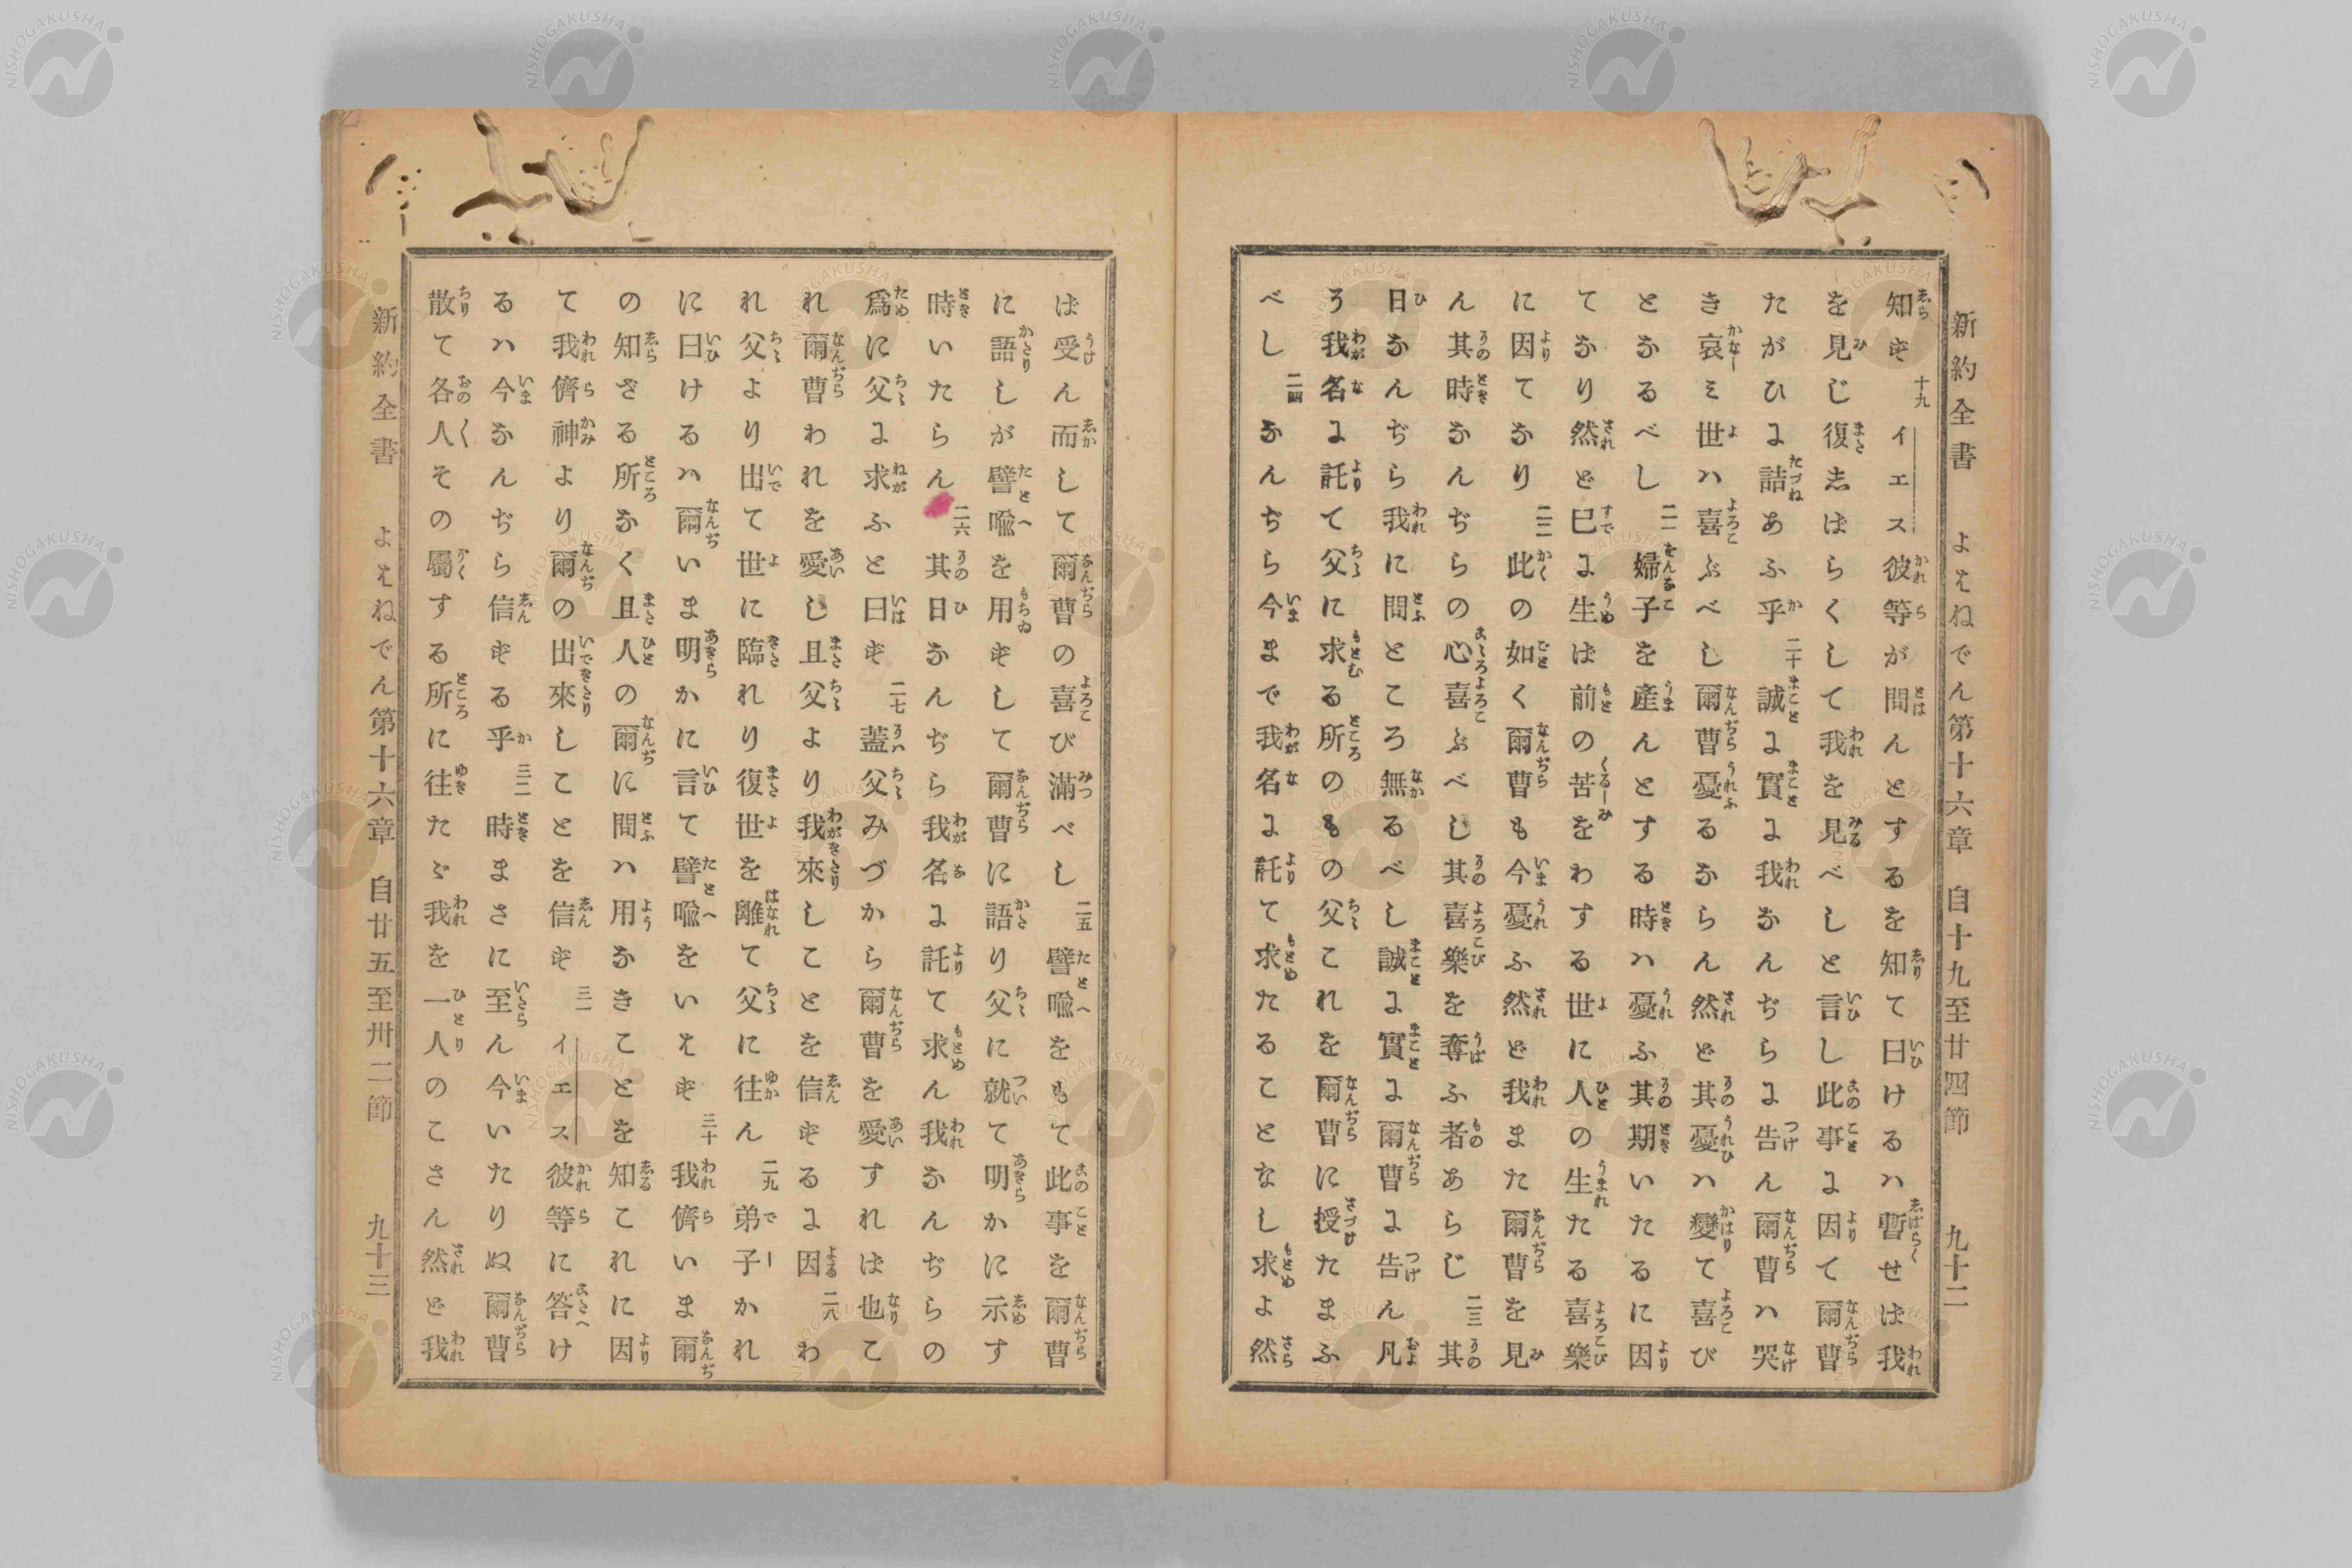 新約全書 よはねでん第十六章 自十九至廿四節 九十二
知ず 十九 イエス彼等が問んとするを知て曰けるハ暫せば我
を見じ復志ばらくして我を見べしと言し此事に因て爾曹
たがひに詰あふ乎 二十 誠に實に我なんぢらに告ん爾曹ハ哭
き哀ミ世ハ喜ぶべし爾曹憂るならん然ど其憂ハ變て喜び
となるべし 二一 婦子を產んとする時ハ憂ふ其期いたるに因
てなり然ど已に生ば前の苦をわする世に人の生たる喜樂
に因てなり 二二 此の如く爾曹も今憂ふ然ど我また爾曹を見
ん其時なんぢらの心喜ぶべし其喜樂を奪ふ者あらじ 二三 其
日なんぢら我に問ところ無るべし誠に實に爾曹に告ん凡
そ我名に託て父に求る所のもの父これを爾曹に授たまふ
べし 二四 なんぢら今まで我名に託て求たることなし求よ然
ば受ん而して爾曹の喜び滿べし 二五 譬喩をもて此事を爾曹
に語しが譬喩を用ずして爾曹に語り父に就て明かに示す
時いたらん 二六 其日なんぢら我名に託て求ん我なんぢらの
爲に父に求ふと曰ず 二七 蓋父みづから爾曹を愛すれば也こ
れ爾曹われを愛し且父より我來しことを信ずるに因 二八 わ
れ父より出て世に臨れり復世を離て父に往ん 二九 弟子かれ
に曰けるハ爾いま明かに言て譬喩をいはず 三十 我儕いま爾
の知ざる所なく且人の爾に問ハ用なきことを知これに因
て我儕神より爾の出來しことを信ず 三一 イエス彼等に答け
るハ今なんぢら信ずる乎 三二 時まさに至ん今いたりぬ爾曹
散て各人その屬する所に往たゞ我を一人のこさん然ど我
新約全書 よはねでん第十六章 自廿五至卅二節 九十三